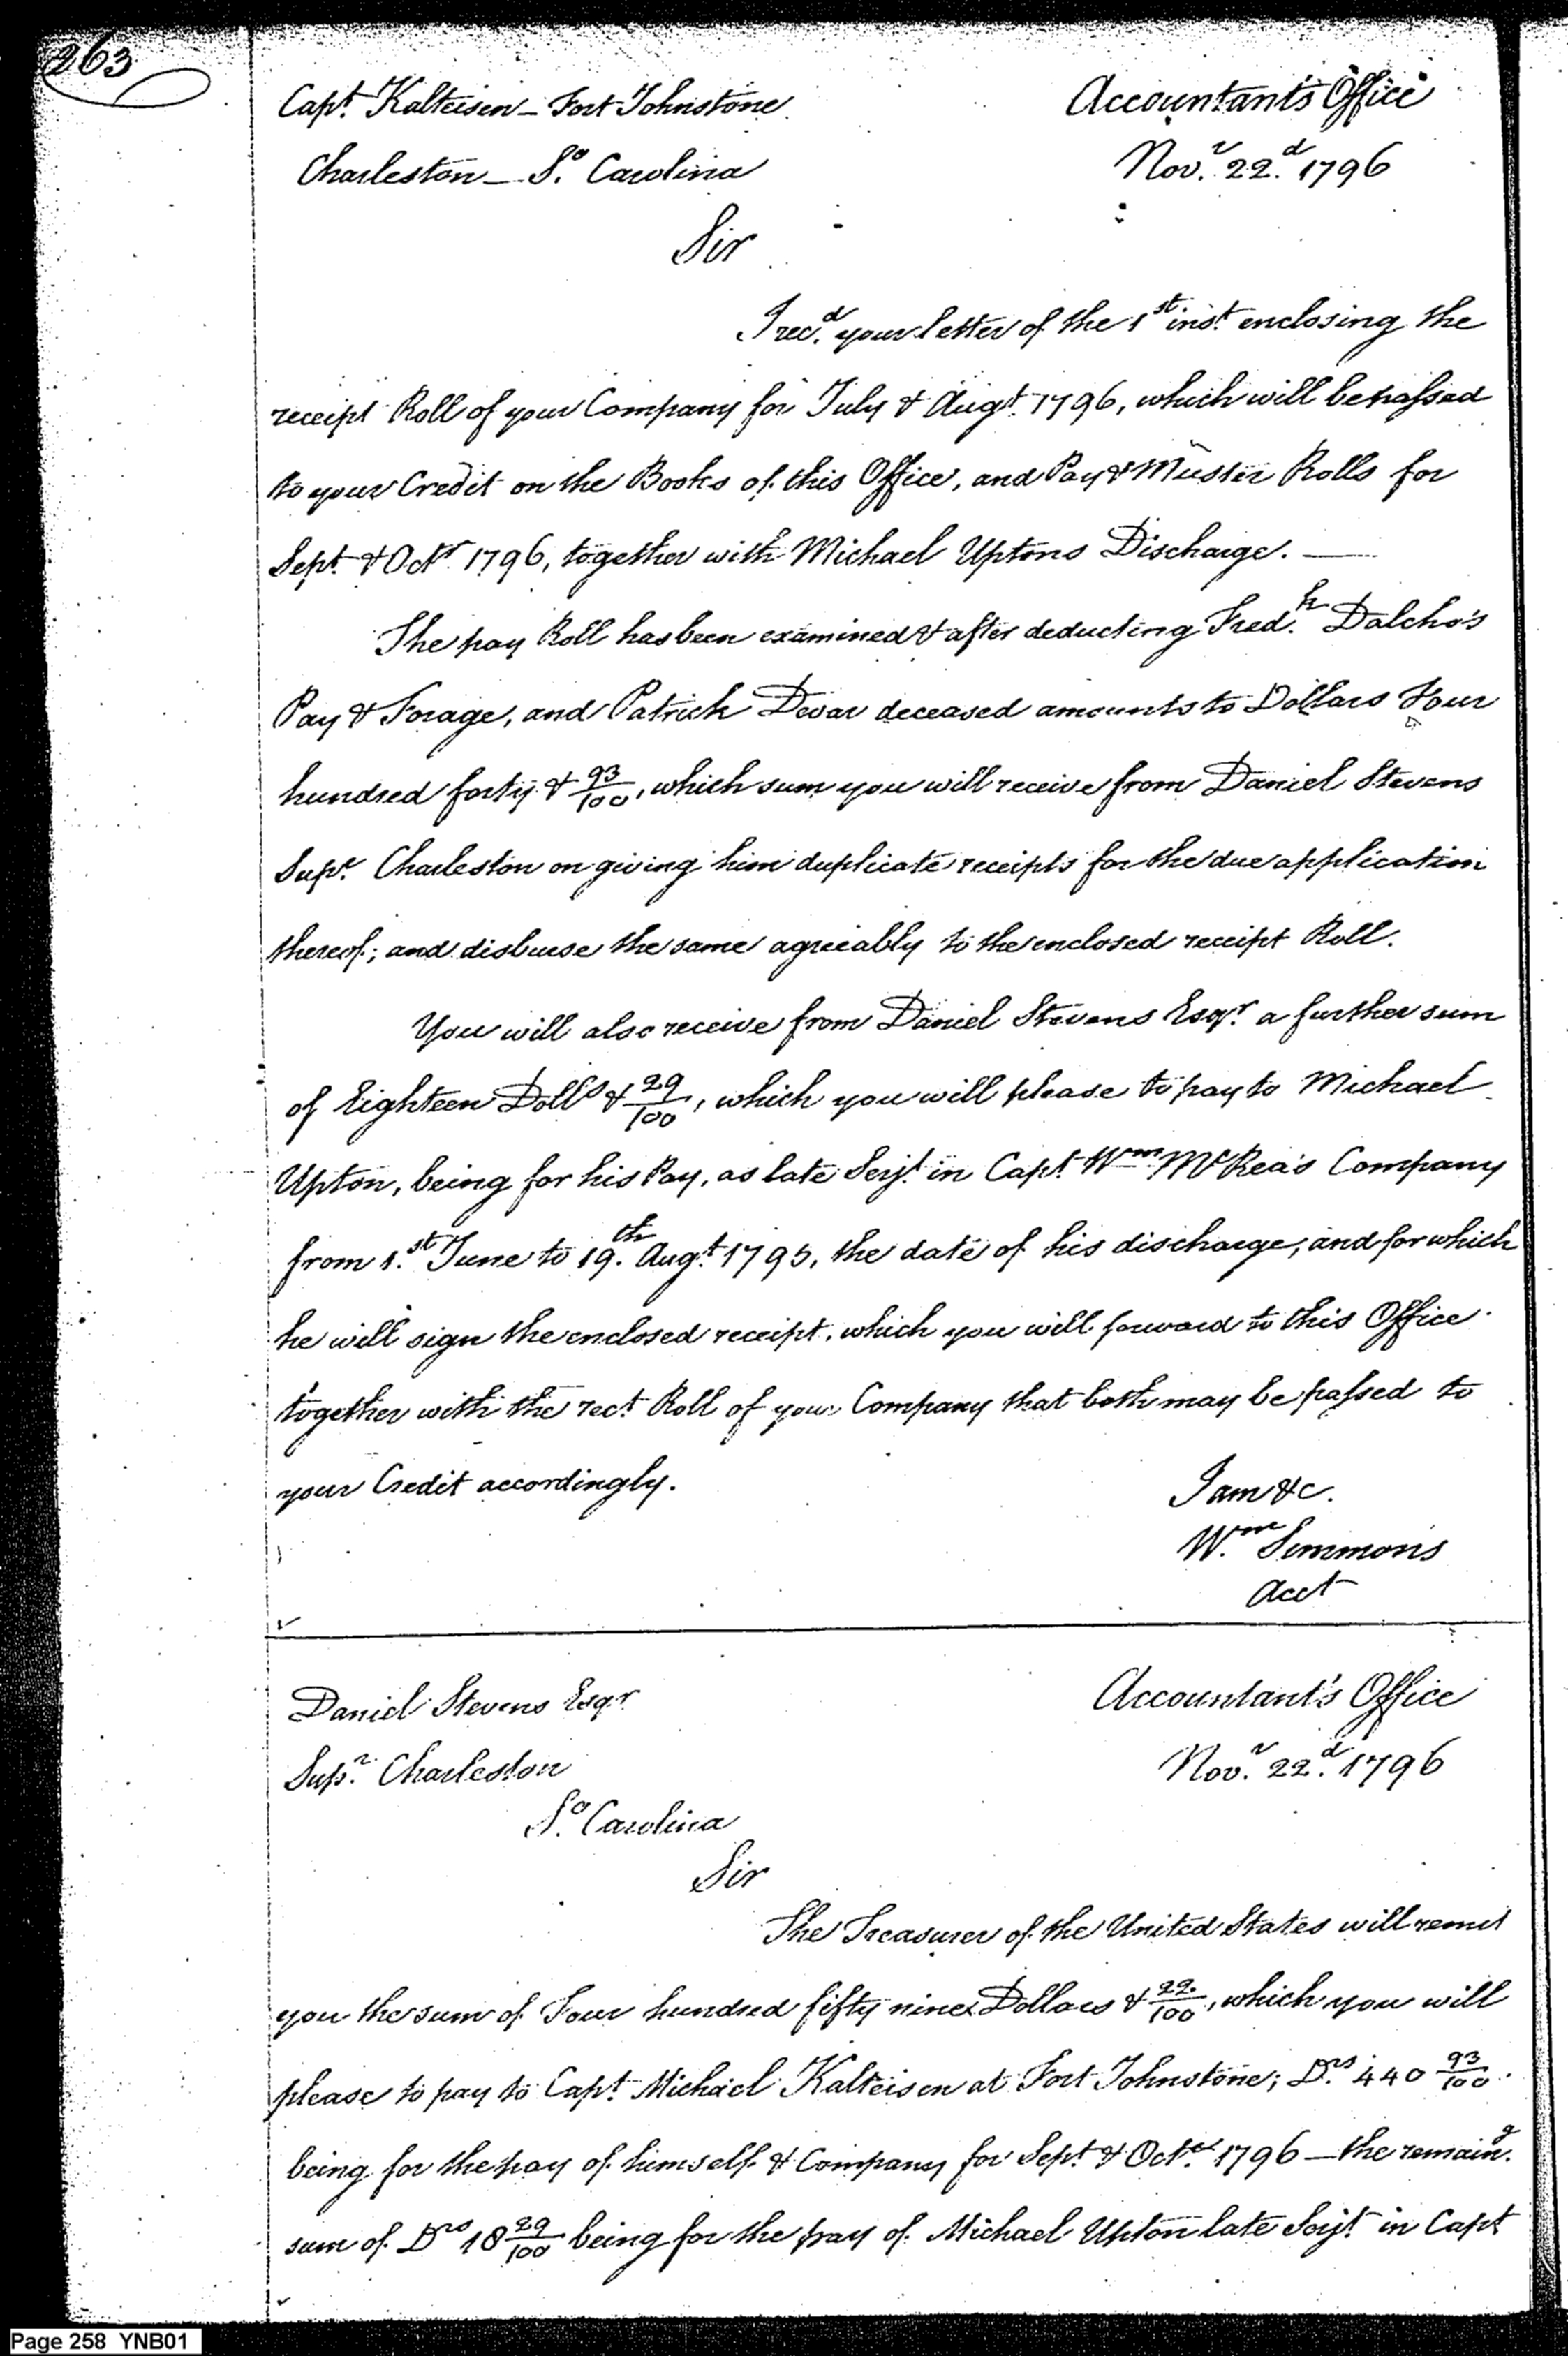 263
Capt. Kalteisen - Fort Johnstone
Accountant's Office
Charleston - So. Carolina
Novr. 22d. 1796
Sir
I recd. your letter of the 1st inst. enclosing the
receipt Roll of your Company for July & Augt. 1796, which will be passed
to your Credit on the Books of this Office, and Pay & Muster Rolls for
Sept. & Octr. 1796, together with Michael Uptons Discharge. —
The pay Roll has been examined & after deducting Fredk. Dalcho's
Pay & Forage, and Patrick Devar deceased amounts to Dollars Four
hundred forty & 93/100, which sum you will receive from Daniel Stevens
Supr. Charleston on giving him duplicate receipts for the due application
thereof; and disburse the same agreeably to the enclosed receipt Roll.
You will also receive from Daniel Stevens Esqr. a further sum
of Eighteen Dolls & 29/100, which you will please to pay to Michael
Upton, being for his Pay, as late Serjt. in Capt. Wm. McRea's Company
from 1.st June to 19.th Augt. 1795, the date of his discharge, and for which
he will sign the enclosed receipt, which you will forward to this Office
together with the rect. Roll of your Company that both may be passed to
your Credit accordingly.
I am &c.
Wm. Simmons
Acct
Daniel Stevens Esqr
Accountant's Office
Supr. Charleston
Novr. 22d. 1796
So. Carolina
Sir
The Treasurer of the United States will remit
you the sum of Four hundred fifty nine Dollars & 22/100, which you will
please to pay to Capt. Michael Kalteisen at Fort Johnstone; Drs. 440 93/100.
being for the pay of himself & Company for Sept. & Octr. 1796 — the remaing.
sum of Drs 18 29/100 being for the pay of Michael Upton late Serjt. in Capt
Page 258 YNB01